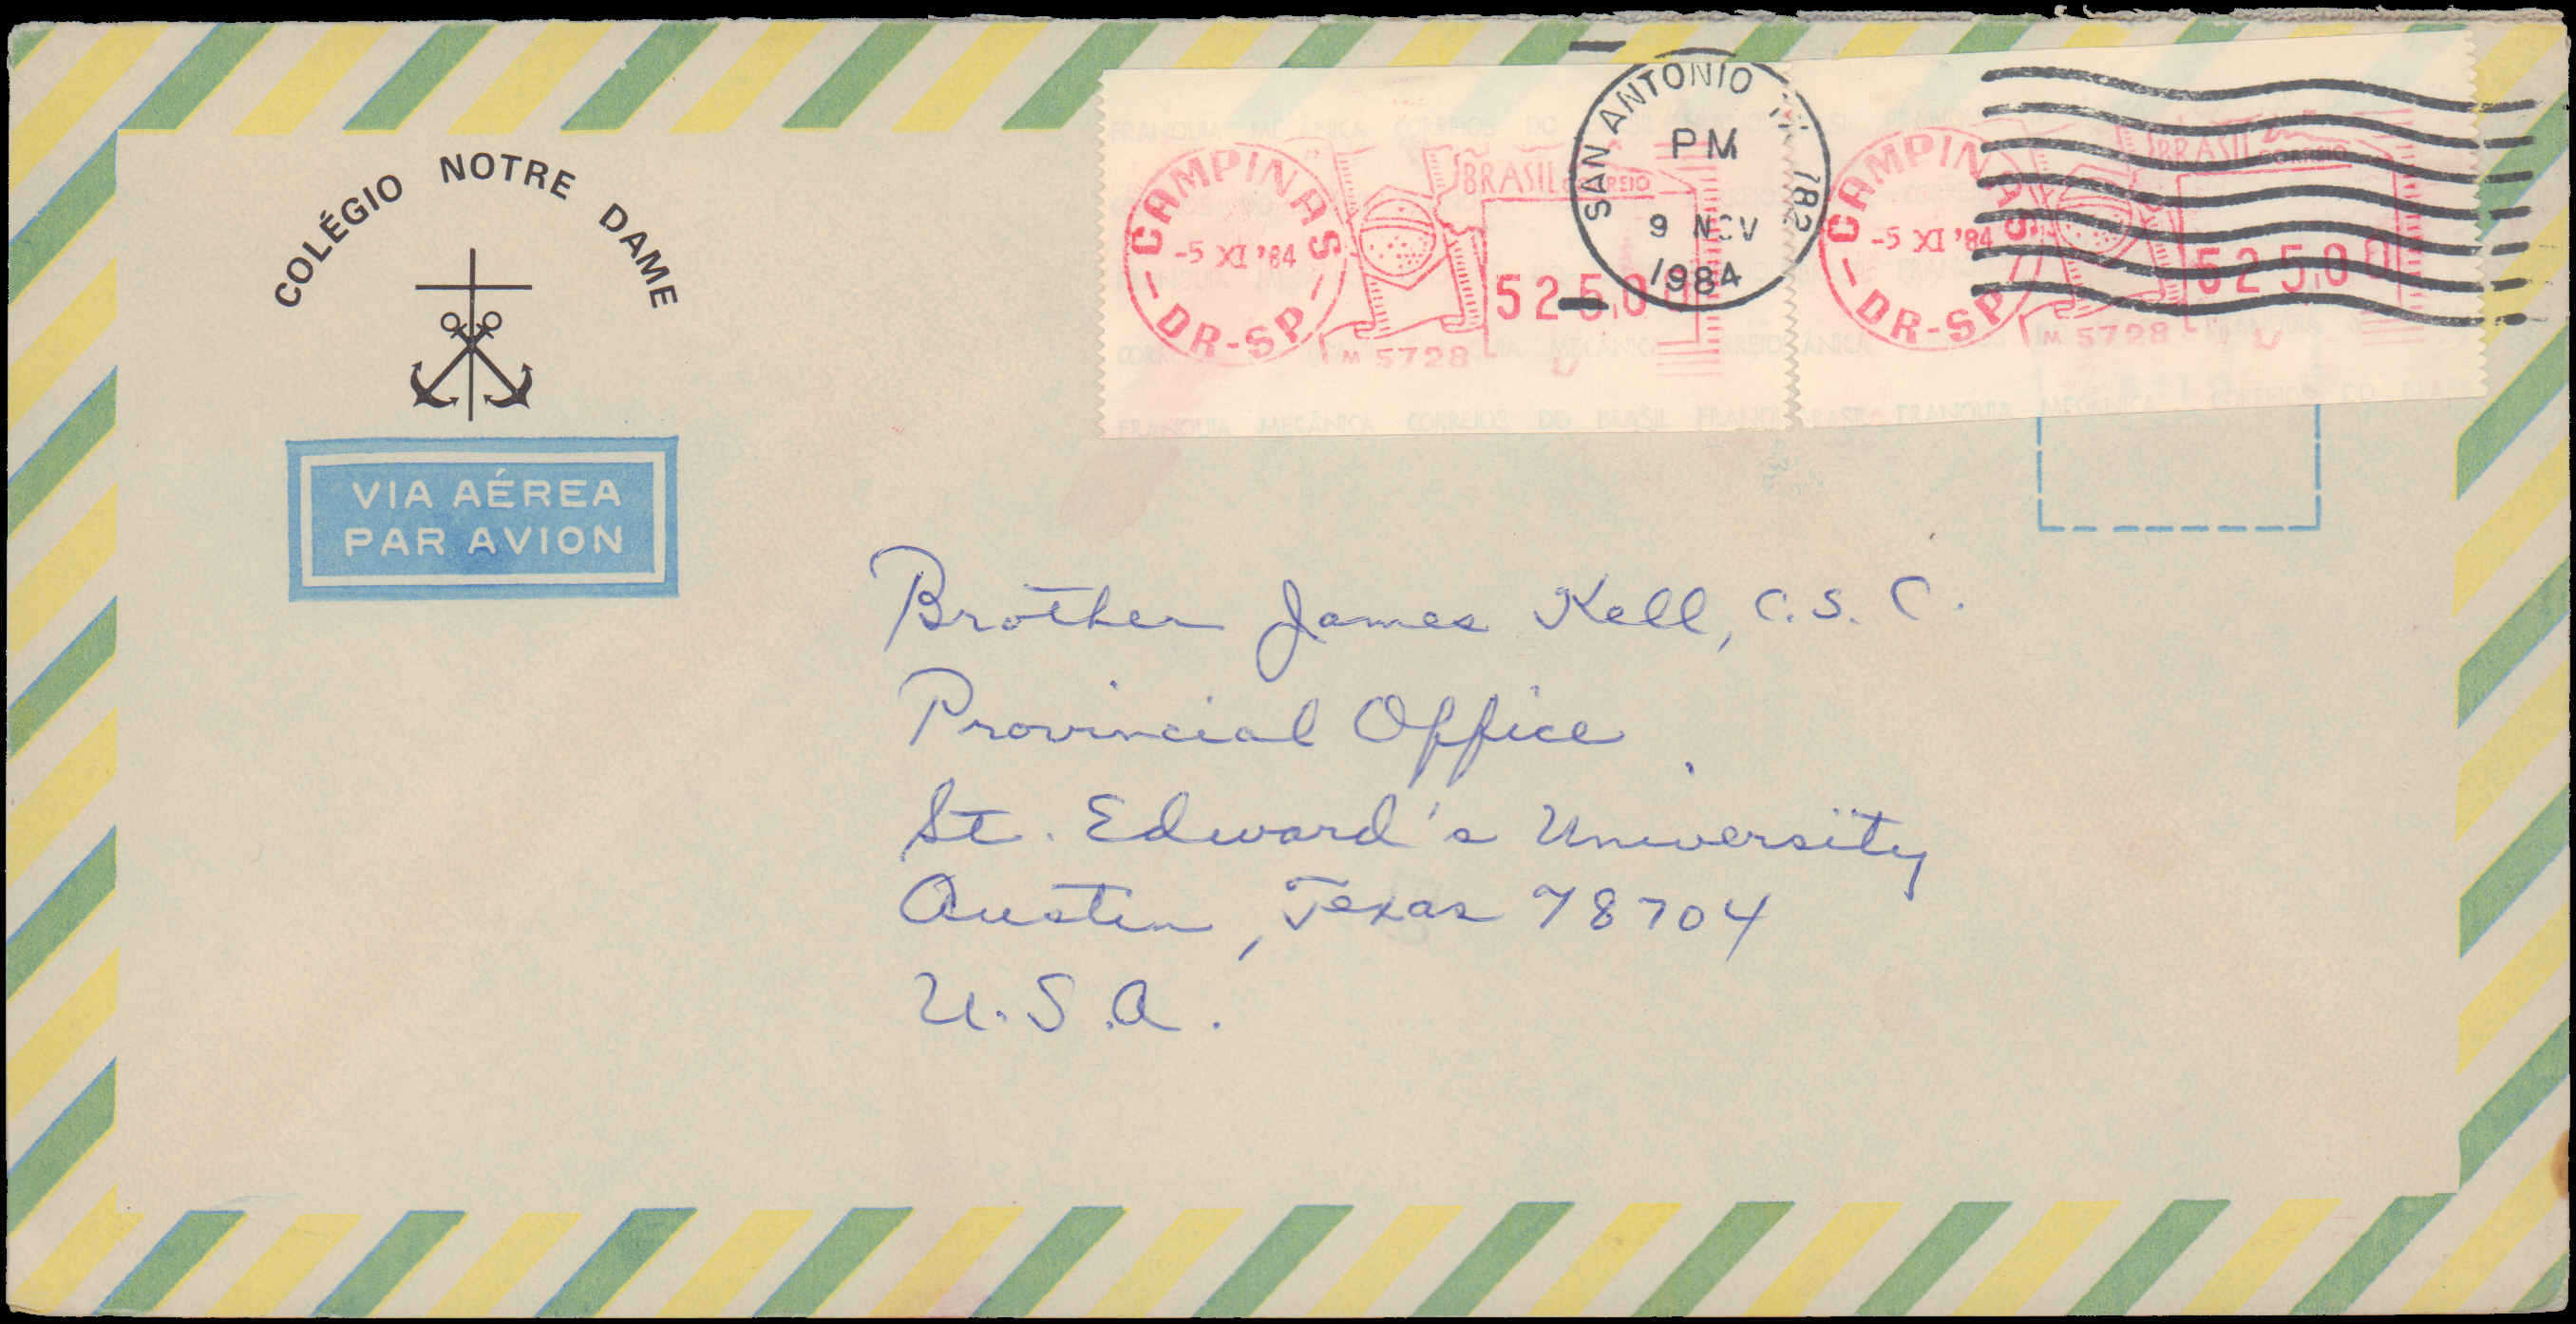 COLÉGIO NOTRE DAME
VIA AÉREA
PAR AVION
CAMPINAS
-5 XI '84
DR-SP
BRASIL CORREIO
525,00
M 5728
SAN ANTONIO TX 782
PM
9 NOV
1984
CAMPINAS
-5 XI '84
DR-SP
BRASIL CORREIO
525,00
M 5728
FRANQUIA MECÂNICA CORREIOS DO BRASIL
Brother James Kell, C.S.C.
Provincial Office
St. Edward's University
Austin, Texas 78704
U.S.A.